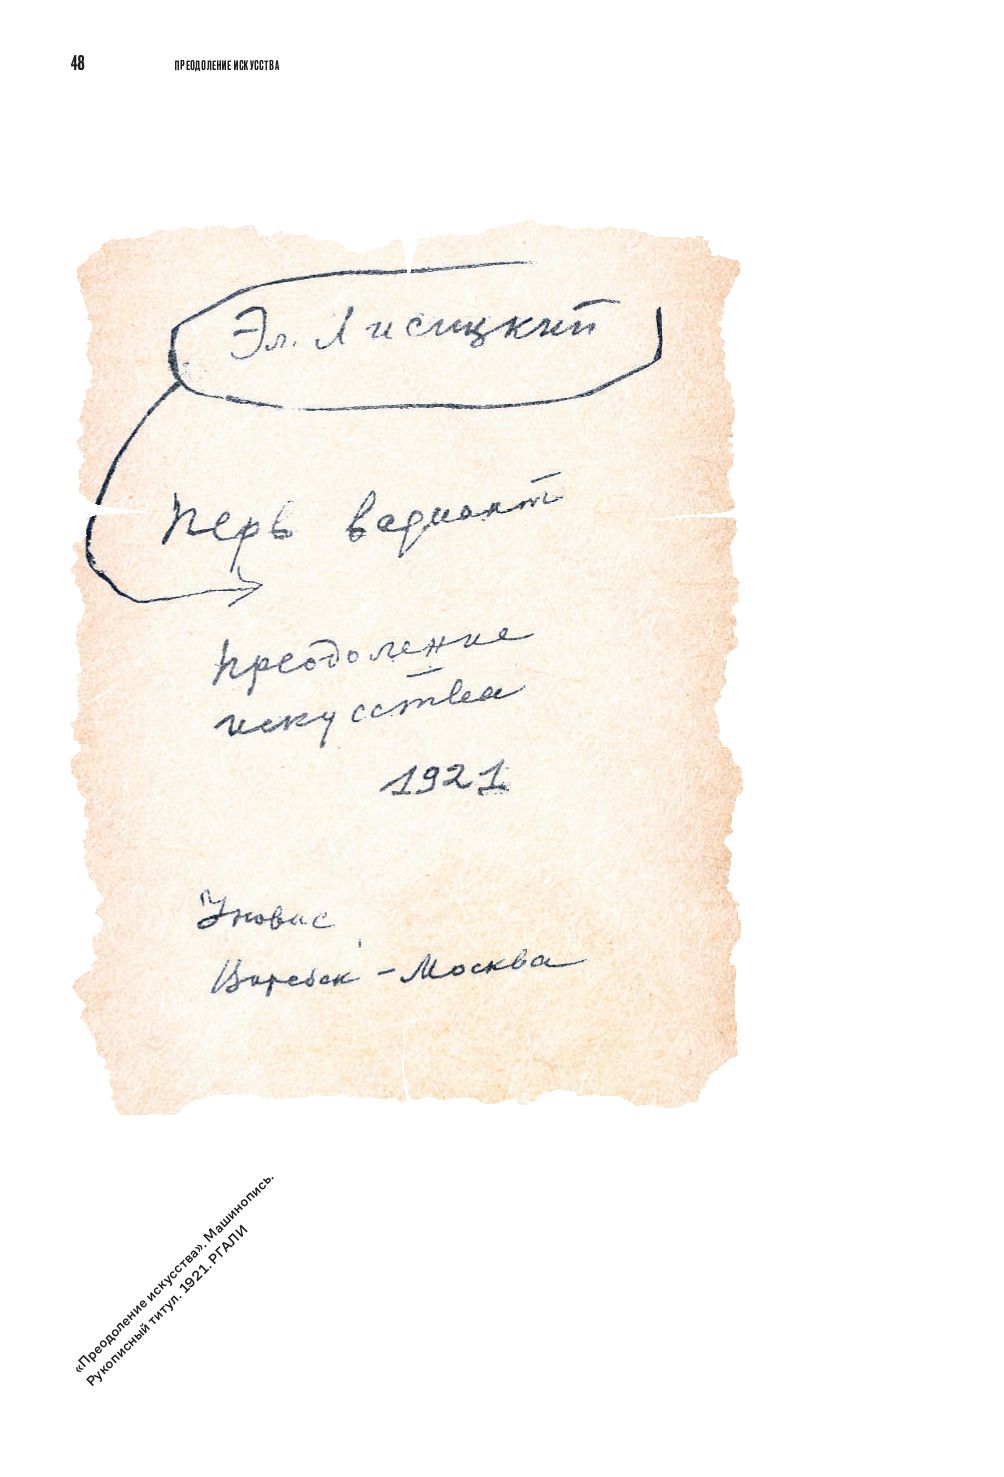 48
ПРЕОДОЛЕНИЕ ИСКУССТВА
Эл. Лисицкий
Перв вариант
Преодоление
искусства
1921
Уновис
Витебск - Москва
«Преодоление искусства». Машинопись.
Рукописный титул. 1921. РГАЛИ